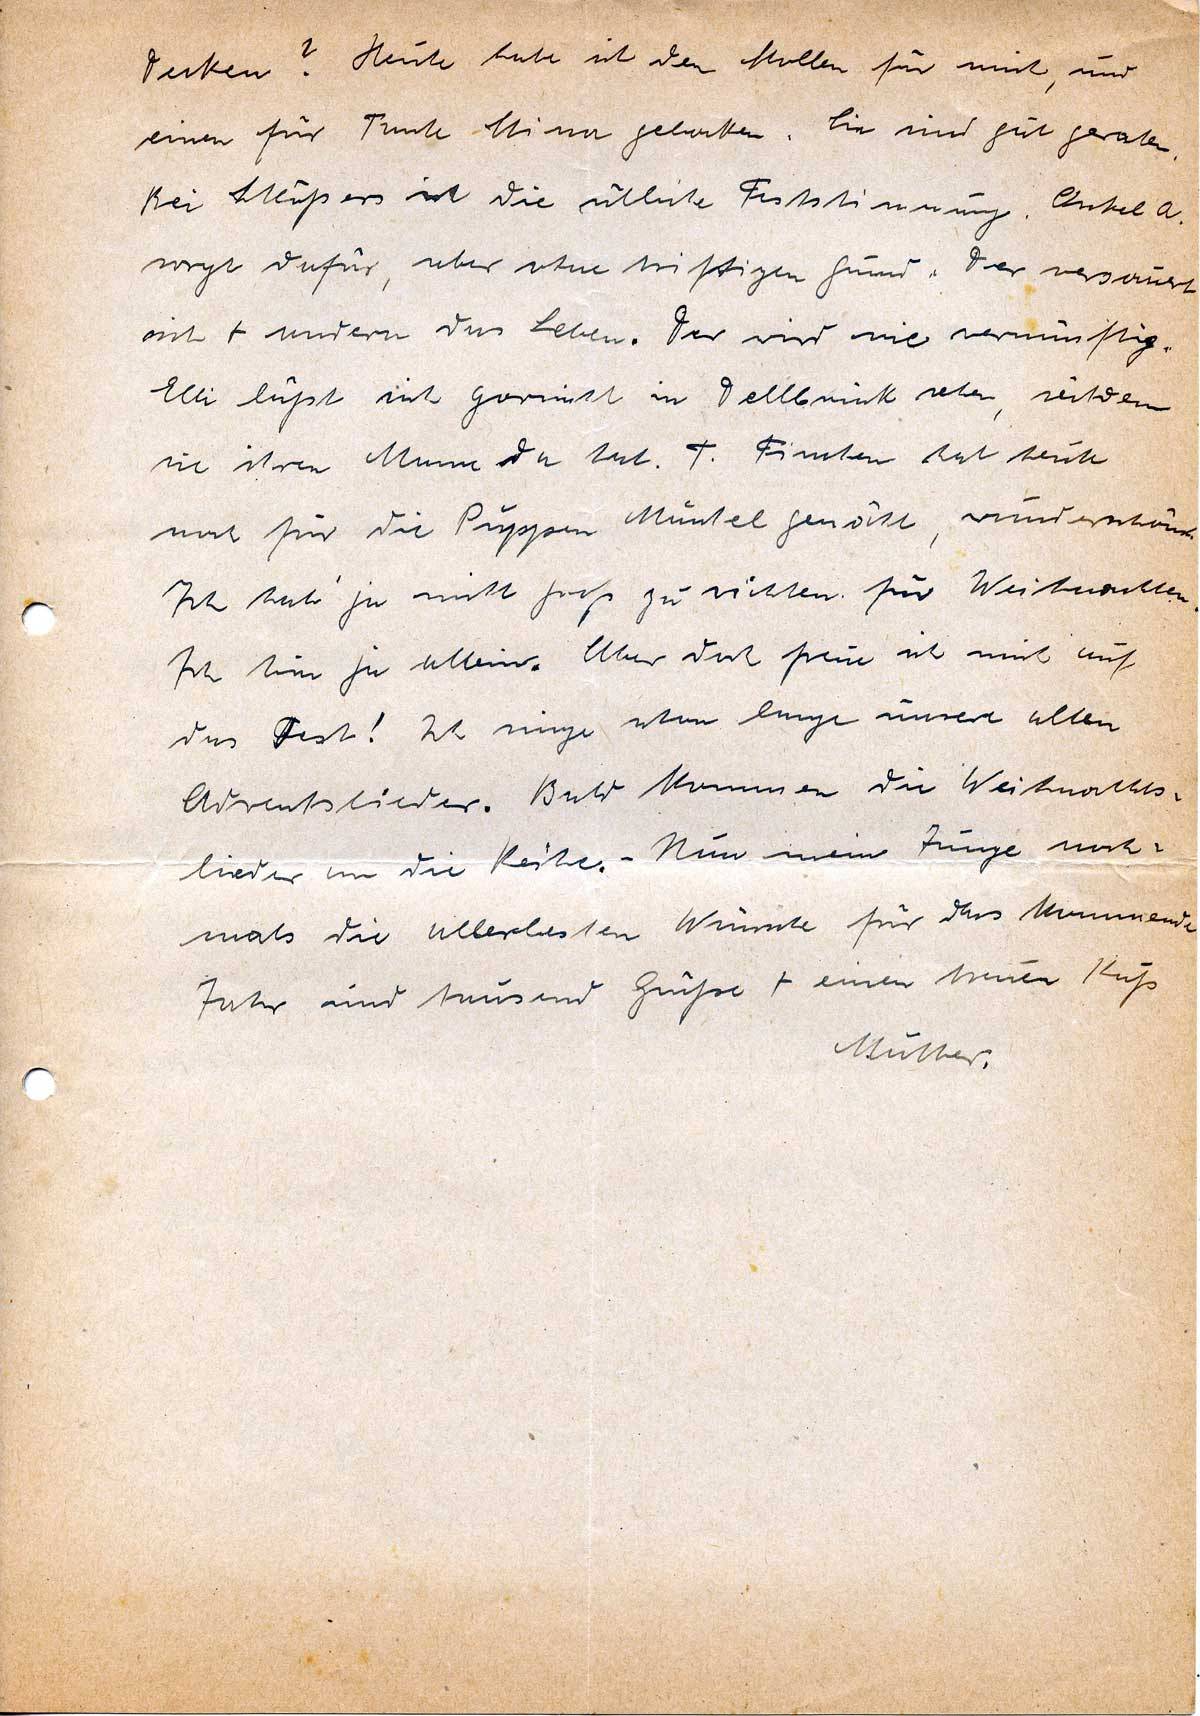 decken? Heute habe ich den Stollen für mich, und
einen für Tante Mina gebacken. Sie sind gut geraten.
Bei Stüßers ist die übliche Feststimmung. Onkel A.
sorgt dafür, aber ohne triftigen Grund. Der versauert
sich + andern das Leben. Der wird nie vernünftig.
Elli läßt sich garnicht in Dellbrück sehen, seitdem
sie ihren Mann da hat. T. Finchen hat heute
noch für die Puppen Mäntel genäht, wunderschön.
Ich hab' ja nicht groß zu richten für Weihnachten.
Ich bin ja allein. Aber doch freue ich mich auf
das Fest! Ich singe schon lange unsere alten
Adventslieder. Bald kommen die Weihnachts-
lieder an die Reihe. - Nun mein Junge noch-
mals die allerbesten Wünsche für das kommende
Jahr und tausend Grüße + einen treuen Kuß
Mutter.